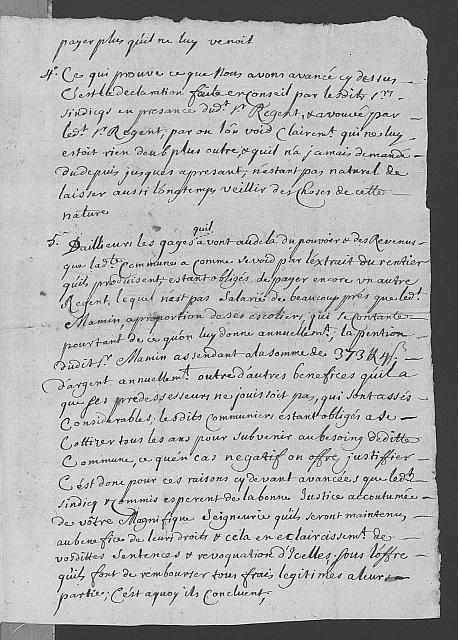 payer plus qu'il ne luy venoit
4° Ce qui prouve ce que Nous avons avancé cy dessus
C'est la declaration faite en conseil par lesdits Srs
sindics en presance dudt Sr Regent, & avouée par
ledt Sr Regent, par ou l'on void Clairemt qui ne luy
estoit rien deub plus outre & qu'il n'a jamais demandé
du depuis jusques apresant, nestant pas naturel de
laisser aussi longtemps veillir des Choses de cette
nature
5° D'ailleurs les gages qu'il a vont audela du pouvoir & des Revenus
que ladte Commune a comme se void par l'extrait du rentier
qu'ils produisent, estant obligés de payer encore un autre
Regent, lequel n'est pas Salarié de beaucoup près que ledt
Mamin, a proportion de ses escoliers, qui se contante
pourtant de ce qu'on luy donne annuellemt, la pention
dudit Sr Mamin assendant a la somme de 373 ℔ 4 s
d'argent annuellemt outre d'autres benefices qu'il a
que ses predessesseurs ne jouissoit pas, qui sont assés
Considerables, lesdits communiers estant obligés a se
Cottizer tous les ans pour subvenir au besoing de ditte
Commune, ce qu'en cas negatif on offre justiffier
C'est donc pour ces raisons cy devant avancées que ledts
sindicq & Commis esperent de la bonne Justice accoutumée
de vôtre Magnifique Seigneurie qu'ils seront maintenus
au benefice de leurs droits & cela en eclaircissemt de
vosdittes sentences & revoquation d'Icelles, sous l'offre
qu'ils font de rembourser tous frais legitimes a leur
partie; C'est a quoy ils Concluent,